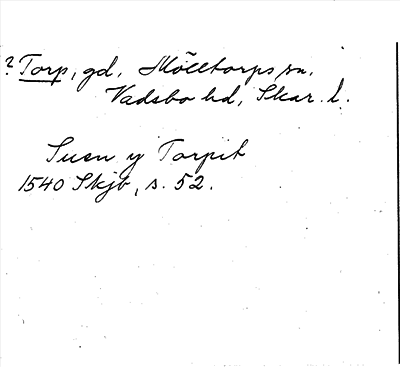 ? Torp, gd, Mölltorps sn.
Vadsbo hd, Skar. l.
Suen y Torpit
1540 Skjb, s. 52.